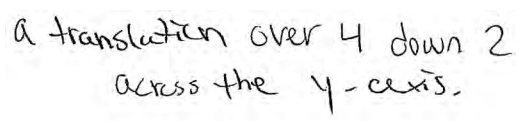 a translation over 4 down 2
across the y-axis.